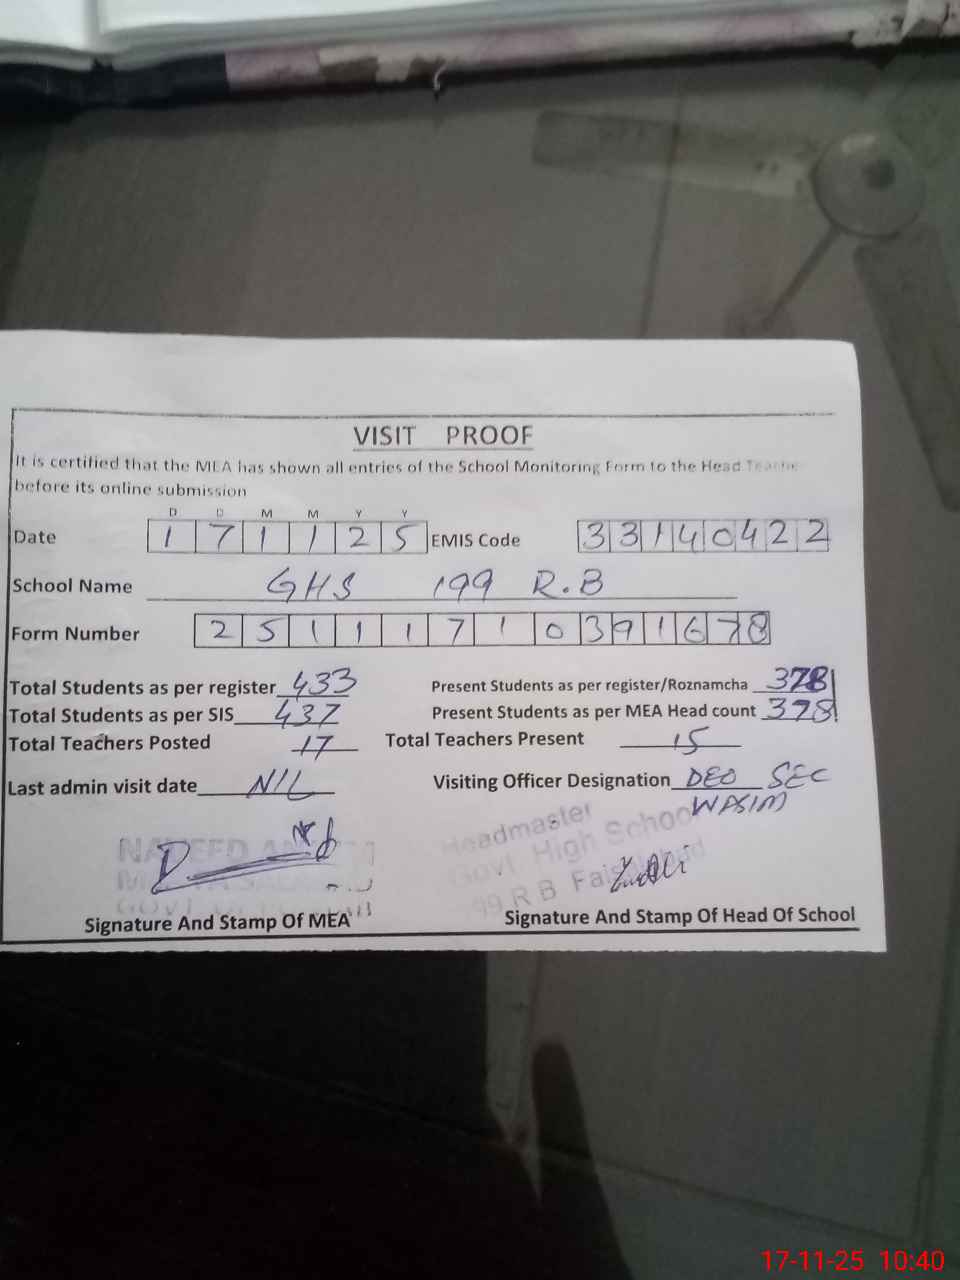 VISIT PROOF
It is certified that the MEA has shown all entries of the School Monitoring Form to the Head Teacher
before its online submission
D D M M Y Y
Date 1 7 1 1 2 5 EMIS Code 3 3 1 4 0 4 2 2
School Name GHS 199 R.B
Form Number 2 5 1 1 1 7 1 0 3 9 1 6 7 8
Total Students as per register 433 Present Students as per register/Roznamcha 378
Total Students as per SIS 437 Present Students as per MEA Head count 378
Total Teachers Posted 17 Total Teachers Present 15
Last admin visit date NIL Visiting Officer Designation DEO SEC
WASIM
Headmaster
Govt. High School
99 R B Faisalabad
Signature And Stamp Of MEA Signature And Stamp Of Head Of School
17-11-25 10:40